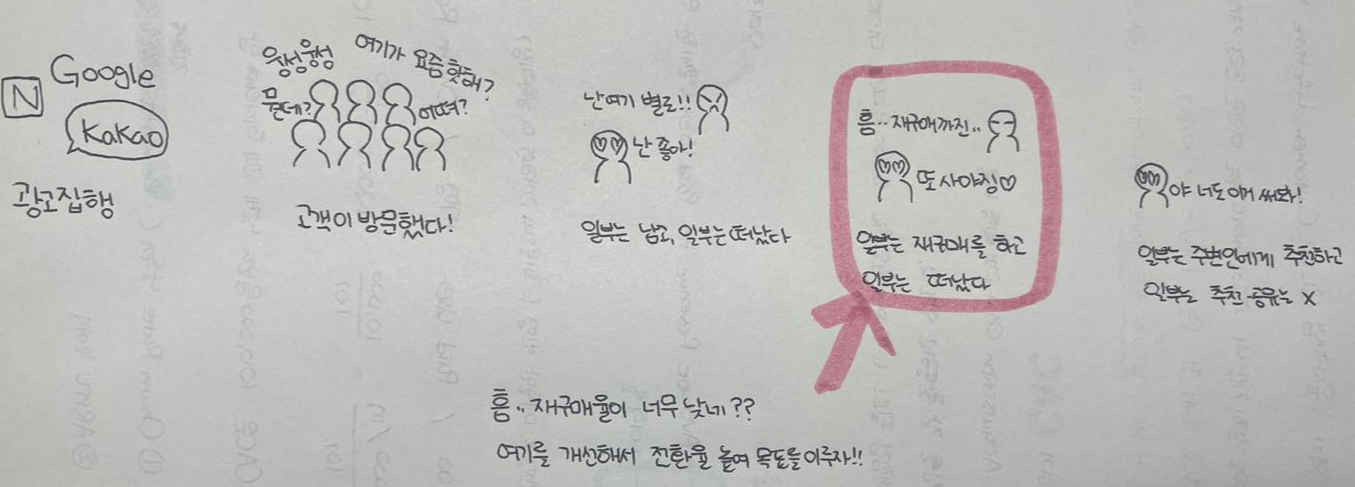 N Google
Kakao
광고집행
웅성웅성
여기가 요즘 핫해?
뭔데?
어떠?
고객이 방문했다!
난 여기 별로!!
난 좋아!
일부는 남고, 일부는 떠났다
흠.. 재구매까진..
또 사야징♡
일부는 재구매를 하고
일부는 떠났다
야 너도 이거 써봐!
일부는 주변인에게 추천하고
일부는 추천·공유는 X
흠.. 재구매율이 너무 낮네??
여기를 개선해서 전환율 높여 목표를 이루자!!